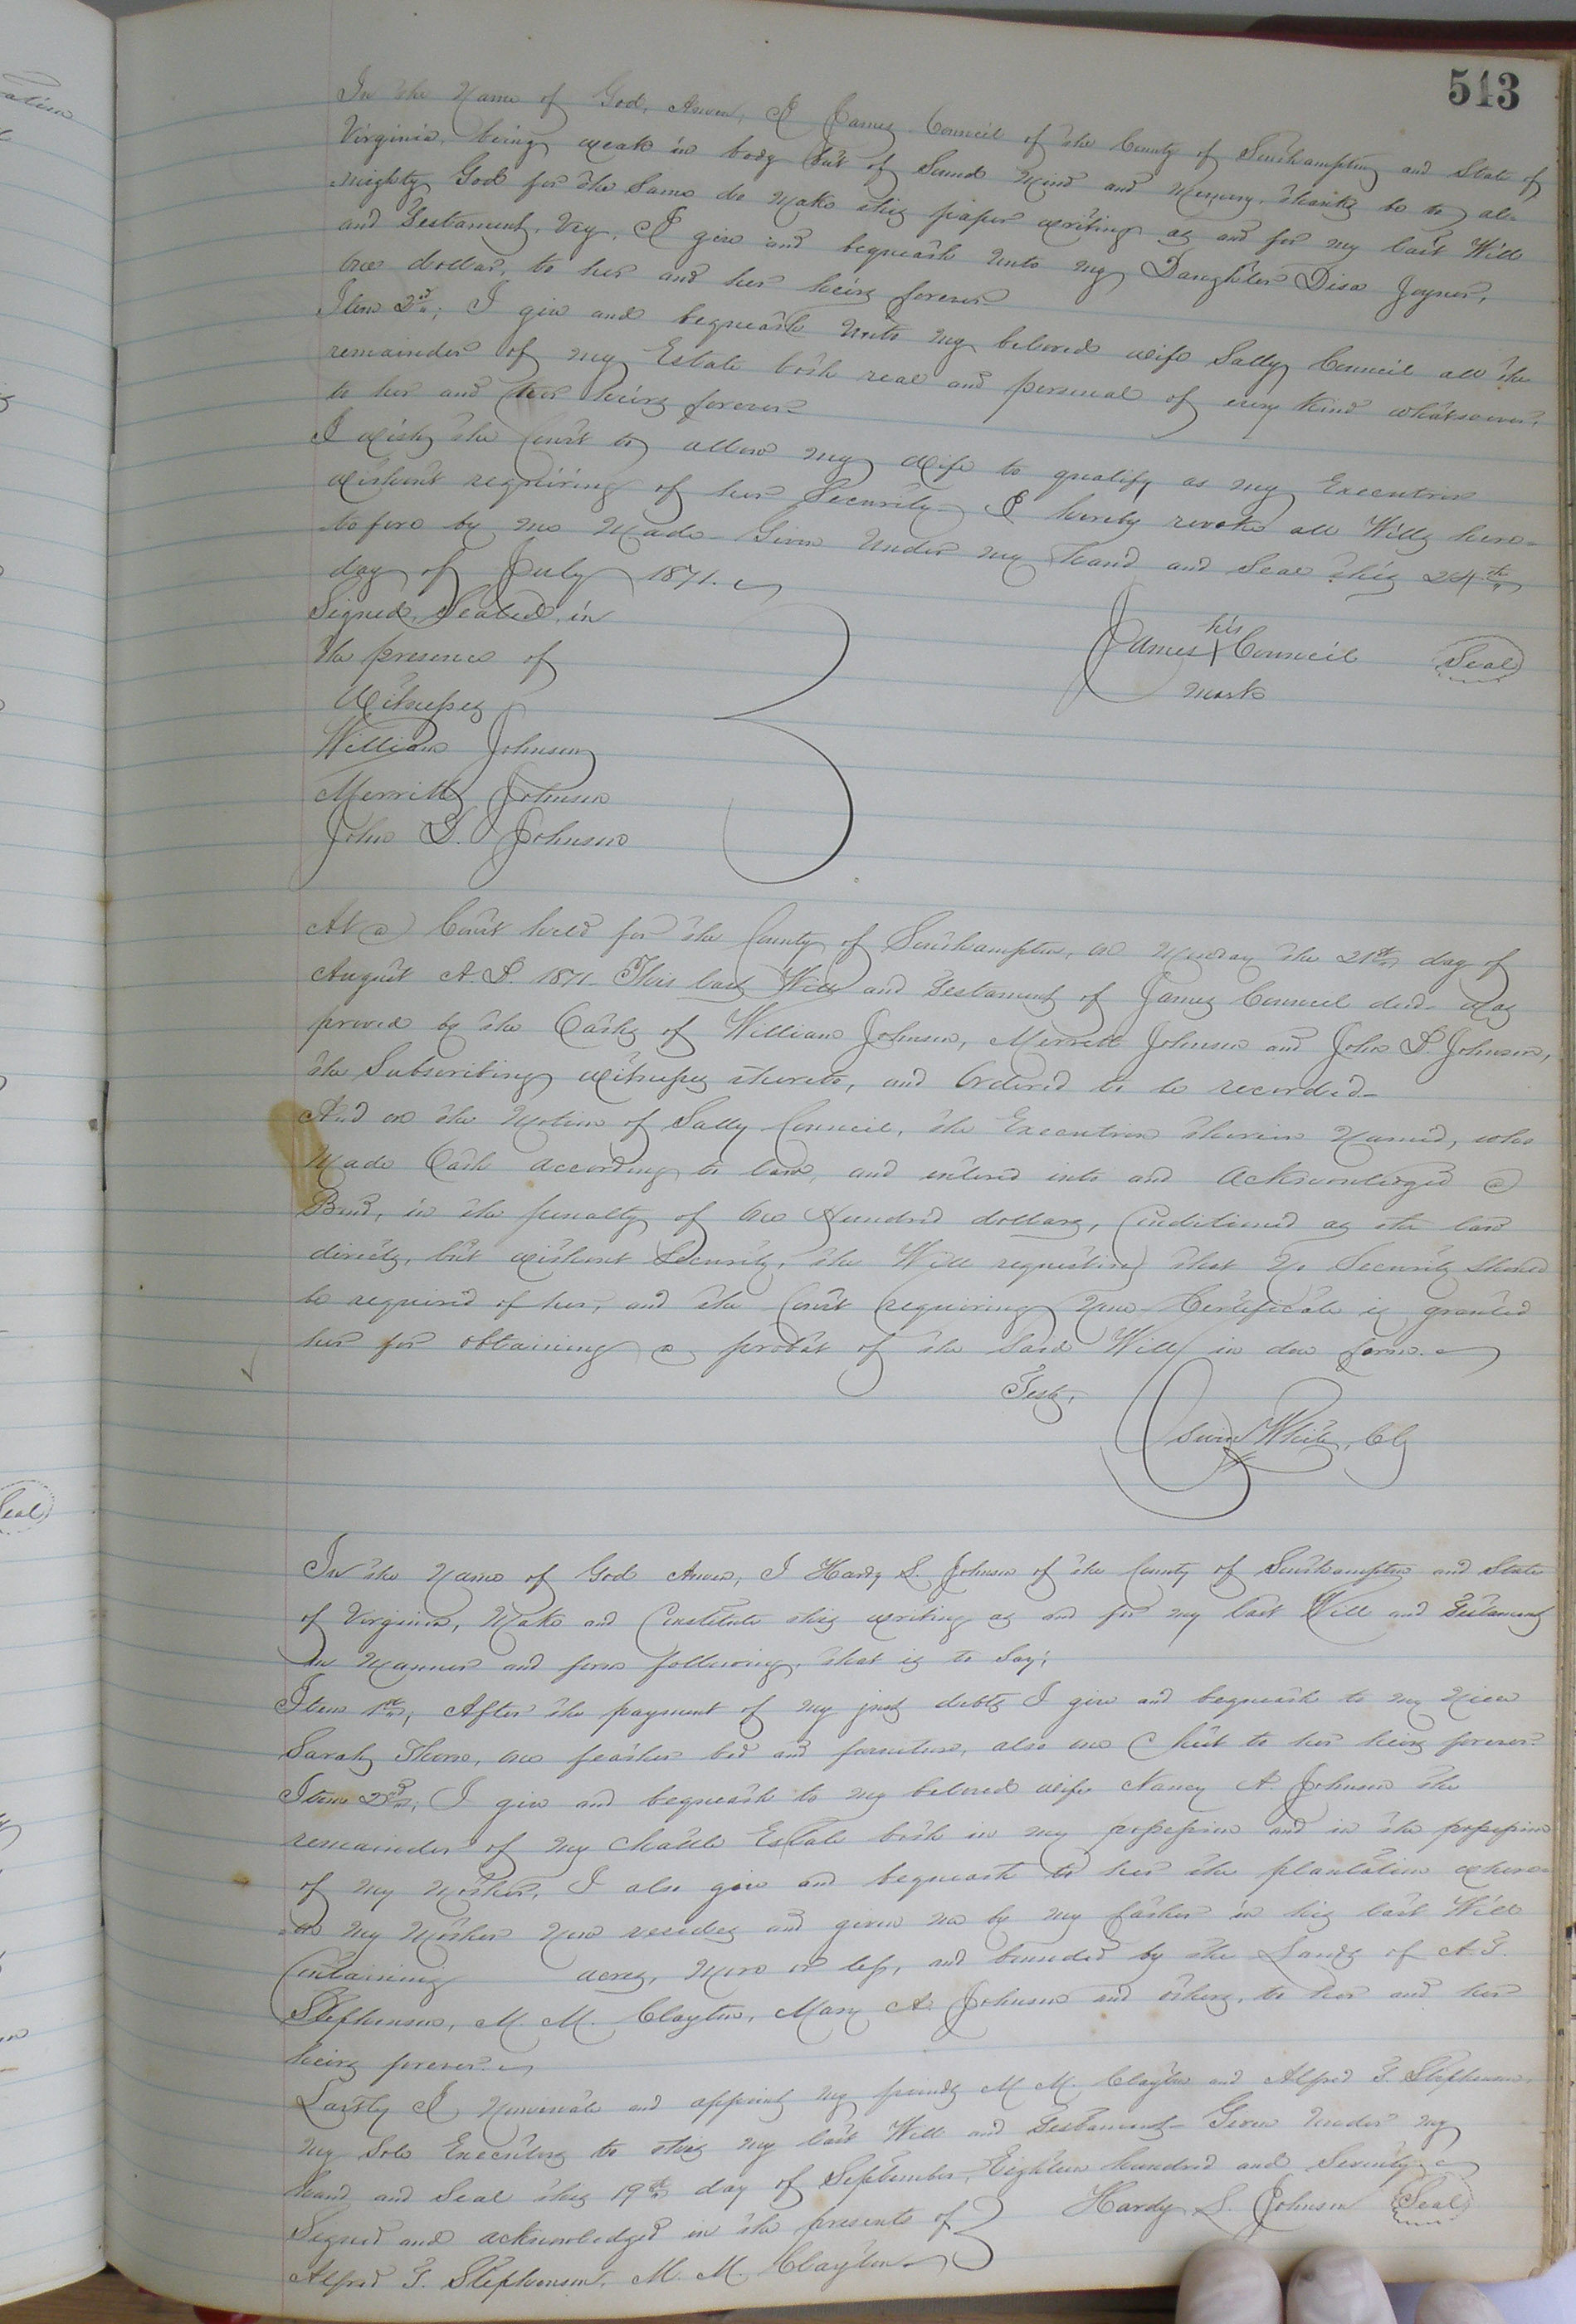 513
In the Name of God, Amen, I James Council of the County of Southampton and State of
Virginia, being weak in body but of Sound Mind and Memory, thanks be to al-
mighty God for the Same do Make this paper writing as and for my last Will
and Testament, Viz, I give and bequeath unto my Daughter Disa Joyner,
One dollar, to her and her heirs forever
Item 2nd; I give and bequeath Unto my beloved wife Sally Council all the
remainder of my Estate both real and personal of every Kind whatsoever,
to her and her heirs forever.
I wish the Court to allow my wife to qualify as my Executrix
without requiring of her Security - I hereby revoke all Wills here-
tofore by me Made - Given Under my hand and Seal this 24th
day of July 1871.
Signed, Sealed, in
the presence of
his
James X Council Seal
mark
Witnesses
William Johnson
Merritt Johnson
John D. Johnson
At a Court held for the County of Southampton, on Monday the 21st day of
August A.D. 1871. This last Will and Testament of James Council decd. Was
proved by the Oaths of William Johnson, Merrett Johnson and John D. Johnson,
the Subscribing witnesses thereto, and Ordered to be recorded-
And on the Motion of Sally Council, the Executrix therein Named, who
Made Oath according to law, and entered into and acknowledged a
Bond, in the penalty of One Hundred dollars, Conditioned as the law
directs, but without Security, the Will requesting that No Security Should
be required of her, and the Court requiring None Certificate is granted
her for obtaining a probat of the Said Will in due form.
Teste,
Edwin White, Clk
In the Name of God Amen, I Hardy S. Johnson of the County of Southampton and State
of Virginia, Make and Constitute this writing as and for my last Will and Testament
in Manner and form following, that is to Say;
Item 1st; After the payment of my just debts I give and bequeath to my Niece
Sarah, one feather bed and furniture, also one Chest to her heirs forever.
Item 2nd; I give and bequeath to my beloved wife Nancy A. Johnson the
remainder of my Chattle Estate both in my possession and in the possession
of my Mother, I also give and bequeath to her the plantation where-
-on my Mother Now resides and given me by my father in his last Will
Containing acres, More or less, and bounded by the Lands of A. T.
Stephenson, M. M. Clayton, Mary A. Johnson and others, to her and her
heirs forever.
Lastly I Nominate and appoint my friends M. M. Clayton and Alfred T. Stephenson,
my Sole Executors to this my last Will and Testament - Given Under my
hand and Seal this 19th day of September, Eighteen hundred and Seventy.
Signed and acknowledged in the presents of Hardy S. Johnson Seal
Alfred T. Stephenson, M. M. Clayton
Seal